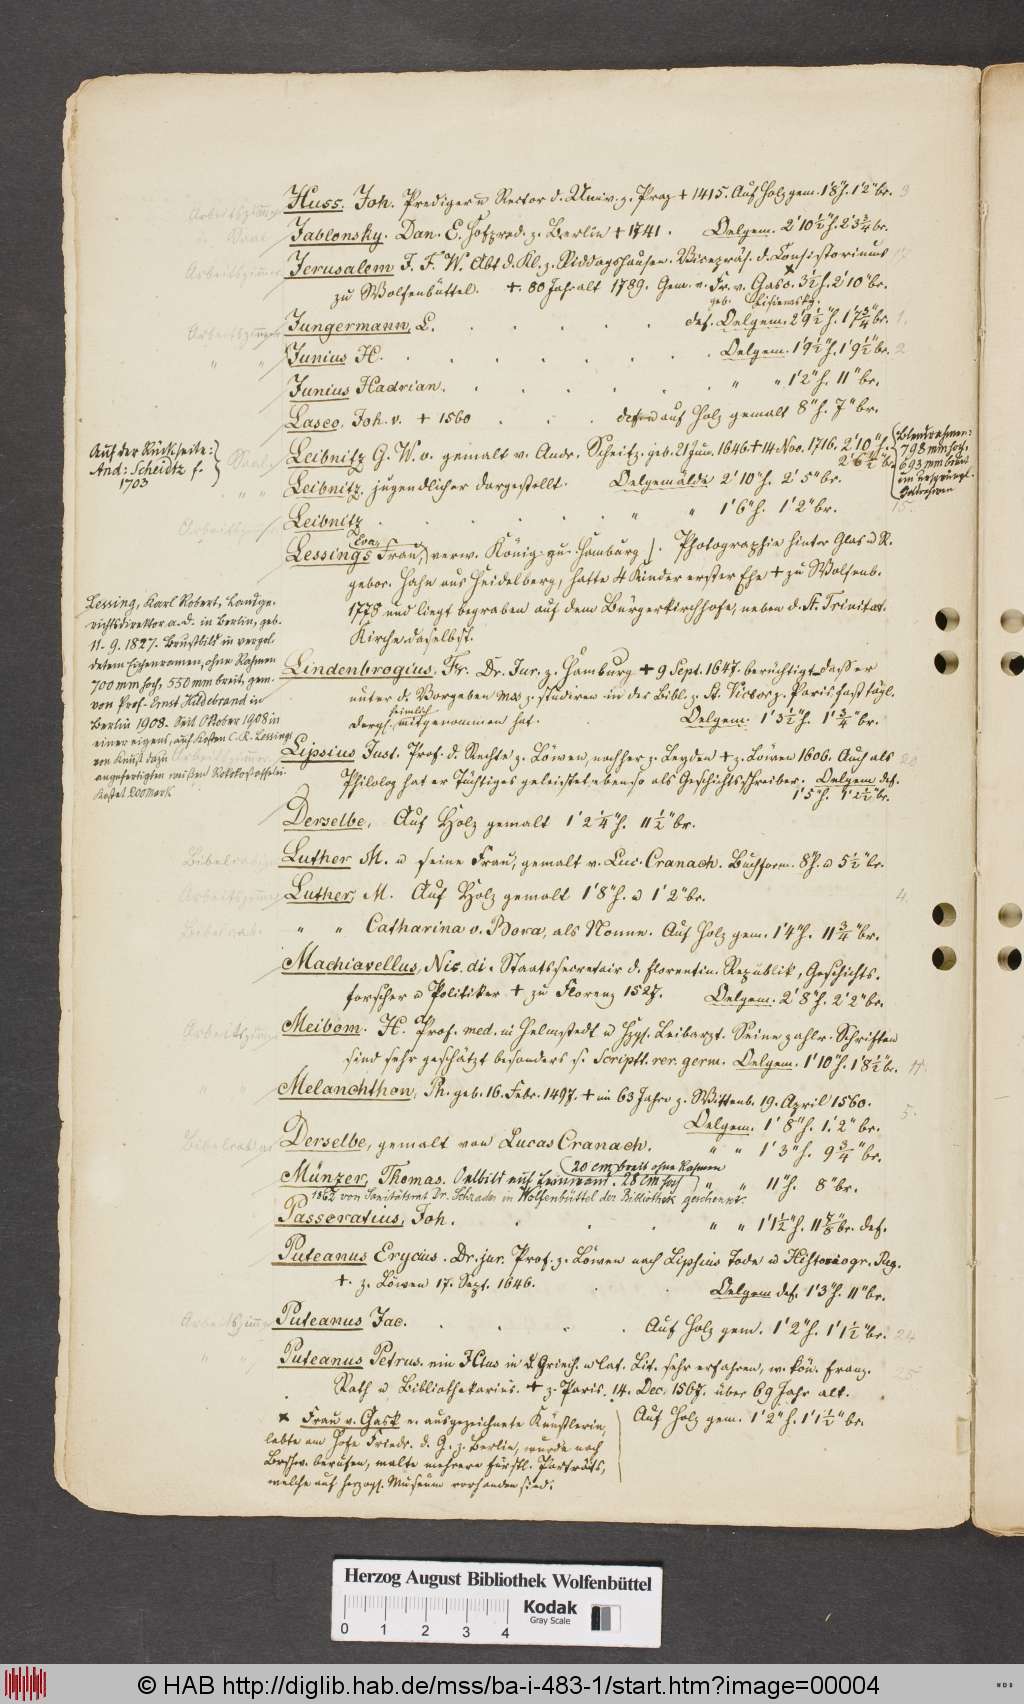 Huss. Joh. Prediger u Rector d. Univ. z. Prag + 1415. Auf Holz gem. 1'8"h. 1'2"br. 3
Arbeitszimmer
Jablonsky. Dan. E. Hofpred. z. Berlin + 1741. Oelgem. 2'10½"h. 2'3¾"br.
u. Saal
Jerusalem J. F. W. Abt d. Kl. z. Riddagshausen. Vicepräs. d. Consistoriums
Arbeitszimmer
zu Wolfenbüttel. +. 80 Jahr alt 1789. Gem. v. Fr. v. Gasc. 3½'h. 2'10"br.
geb. Lisiewsky.
Jungermann, L. def. Oelgem. 2'9½"h. 1'7¾"br. 1.
Arbeitszimmer
Junius H. Oelgem. 1'9½"h. 1'9½"br. 2
" "
Junius Hadrian. " " 1'2"h. 11"br.
Lasco, Joh. v. + 1560 auf Holz gemalt 8"h. 7"br.
Auf der Rückseite:
And: Scheidtz f.
1703
Saal
Leibnitz G. W. v. gemalt v. Andr. Scheitz. geb. 21 Jun. 1646 + 14 Nov. 1716. 2'10"h.
2'6½"br.
Blendrahmen:
798 mm hoch,
693 mm breit
Leibnitz. jugendlicher dargestellt. Oelgemälde 2'10"h. 2'5"br.
" "
Leibnitz " " 1'6"h. 1'2"br. 15.
Arbeitszimmer
Lessings Frau, (Eva, verw. König zu Hamburg). Photographie hinter Glas u R.
gebor. Hahn aus Heidelberg, hatte 4 Kinder erster Ehe + zu Wolfenb.
1778 und liegt begraben auf dem Bürgerkirchhofe, neben d. St. Trinitat.
Kirche daselbst.
Lessing, Karl Robert, Landge-
richtsdirektor a. D. in Berlin, geb.
11. 9. 1827. Brustbild in vergol-
detem Eichenrahmen, ohne Rahmen
700 mm hoch, 550 mm breit, gem.
von Prof. Ernst Hildebrand in
Berlin 1908. Seit Oktober 1908 in
einer eigens, auf Kosten C. R. Lessings
von Kunst dazu
angefertigten weißen Rokokostaffelei.
Kostet 200 Mark
Lindenbrogius. Fr. Dr. Jur. z. Hamburg + 9 Sept. 1647. berüchtigt, dass er
unter d. Vorgeben Mss z. studiren in der Bibl. z. St. Victor z. Paris fast tägl.
dergl. heimlich mitgenommen hat. Oelgem. 1'3½"h. 1'¾"br.
Lipsius Just. Prof. d. Rechte z. Löwen, nachher z. Leyden + z. Löwen 1606. Auch als 20
Philolog hat er Tüchtiges geleistet, ebenso als Geschichtsschreiber. Oelgem. def.
1'5"h. 1'2½"br.
Derselbe, Auf Holz gemalt 1'2¼"h. 11½"br.
Luther M. u seine Frau, gemalt v. Luc. Cranach. Buchform. 8"h. u 5½"br.
Luther, M. Auf Holz gemalt 1'8"h. u 1'2"br. 4.
Arbeitszimmer
" " Catharina v. Bora, als Nonne. Auf Holz gem. 1'4"h. 11¾"br.
Machiavellus, Nic. di. Staatssecretair d. florentin. Republik, Geschichts-
forscher u Politiker + zu Florenz 1527. Oelgem. 2'8"h. 2'2"br.
Meibom. H. Prof. med. in Helmstedt u Hzgl. Leibarzt. Seine zahlr. Schriften
Arbeitszimmer
sind sehr geschätzt besonders s. Scriptt. rer. germ. Oelgem. 1'10"h. 1'8½"br. 11.
Melanchthon, Ph. geb. 16. Febr. 1497. + im 63 Jahre z. Wittenb. 19. April 1560.
" "
Oelgem. 1'8"h. 1'2"br. 5.
Derselbe, gemalt von Lucas Cranach. " " 1'3"h. 9¾"br.
Münzer, Thomas. Oelbild auf Leinwand. 28 cm hoch " " 11"h. 8"br.
20 cm breit ohne Rahmen
1862 von Sanitätsrat Dr. Schrader in Wolfenbüttel der Bibliothek geschenkt.
Passeratius, Joh. " " 1'1½"h. 11⅞"br. def.
Puteanus Erycius. Dr. jur. Prof. z. Löwen nach Lipsius Tode u Historiogr. Reg.
+. z. Löwen 17. Sept. 1646. Oelgem def. 1'3"h. 11"br.
Puteanus Jac. Auf Holz gem. 1'2"h. 1'1½"br. 24
Arbeitszimmer
Puteanus Petrus. ein JCtus in d. Griech. u lat. Lit. sehr erfahren, w. kön. franz.
" "
Rath u Bibliothekarius. + z. Paris. 14. Dec. 1567. über 69 Jahr alt. 25
Auf Holz gem. 1'2"h. 1'1½"br.
x Frau v. Gask e. ausgezeichnete Künstlerin,
lebte am Hofe Friedr. d. G. z. Berlin, wurde nach
Brschw. berufen, malte mehrere fürstl. Porträts,
welche auf herzogl. Museum vorhanden sind.
Herzog August Bibliothek Wolfenbüttel
0 1 2 3 4
Kodak
Gray Scale
© HAB http://diglib.hab.de/mss/ba-i-483-1/start.htm?image=00004